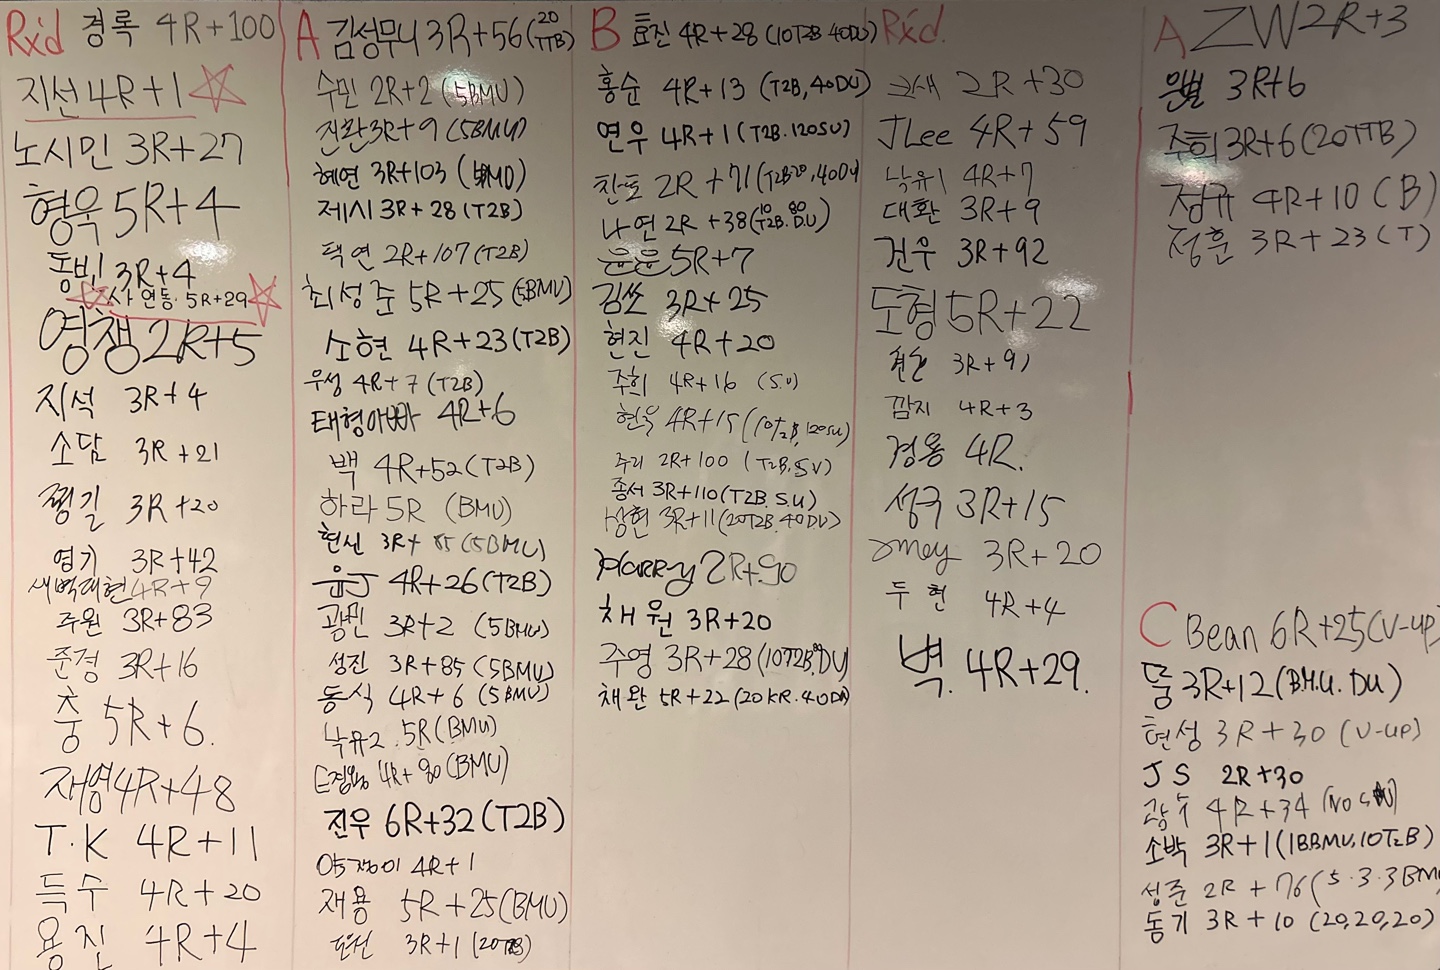 Rx'd 경록 4R+100
지선 4R+1
노시민 3R+27
형욱 5R+4
동빈 3R+4
사연동. 5R+29
영챙 2R+5
지석 3R+4
소담 3R+21
찡길 3R+20
염기 3R+42
새벽대현 4R+9
주원 3R+83
준경 3R+16
충 5R+6.
재영 4R+48
T.K 4R+11
득수 4R+20
용진 4R+4
A 김성무니 3R+56 (20 TTB)
수민 2R+2 (5BMU)
진환 3R+9 (5BMU)
혜연 3R+103
제시 3R+28 (T2B)
택연 2R+107 (T2B)
최성준 5R+25 (5BMU)
소현 4R+23 (T2B)
우성 4R+7 (T2B)
태형아빠 4R+6
백 4R+52 (T2B)
하라 5R (BMU)
현신 3R+85 (5BMU)
윤J 4R+26 (T2B)
광민 3R+2 (5BMU)
성진 3R+85 (5BMU)
동식 4R+6 (5BMU)
낙유2. 5R (BMU)
4R+90 (BMU)
진우 6R+32 (T2B)
4R+1
재용 5R+25 (BMU)
3R+1
B 효진 4R+28 (10T2B 40DU)
홍순 4R+13 (T2B, 40DU)
연우 4R+1 (T2B. 120SU)
찬호 2R+71
나연 2R+38 (10 T2B. 80 DU)
윤윤 5R+7
김쏘 3R+25
현진 4R+20
주희 4R+16 (S.U)
현욱 4R+15 (10T2B, 120SU)
주리 2R+100 (T2B. SU)
종서 3R+110 (T2B. S.U)
상현 3R+11 (20T2B. 40DU)
Harry 2R+90
채원 3R+20
주영 3R+28
채완 5R+22 (20KR. 40DU)
Rx'd.
2R+30
JLee 4R+59
낙유1 4R+7
대환 3R+9
건우 3R+92
도형 5R+22
3R+91
깜지 4R+3
경용 4R.
성국 3R+15
3R+20
두현 4R+4
벽. 4R+29.
A ZW 2R+3
은별 3R+6
주희 3R+6 (20TTB)
정규 4R+10 (B)
정훈 3R+23 (T)
C Bean 6R+25 (V-up)
뚱 3R+12 (B.M.U. DU)
현성 3R+30 (V-UP)
JS 2R+30
4R+34
소박 3R+1 (1BBMU, 10T2B)
성준 2R+76 (5.3.3BMU
동기 3R+10 (20,20,20)